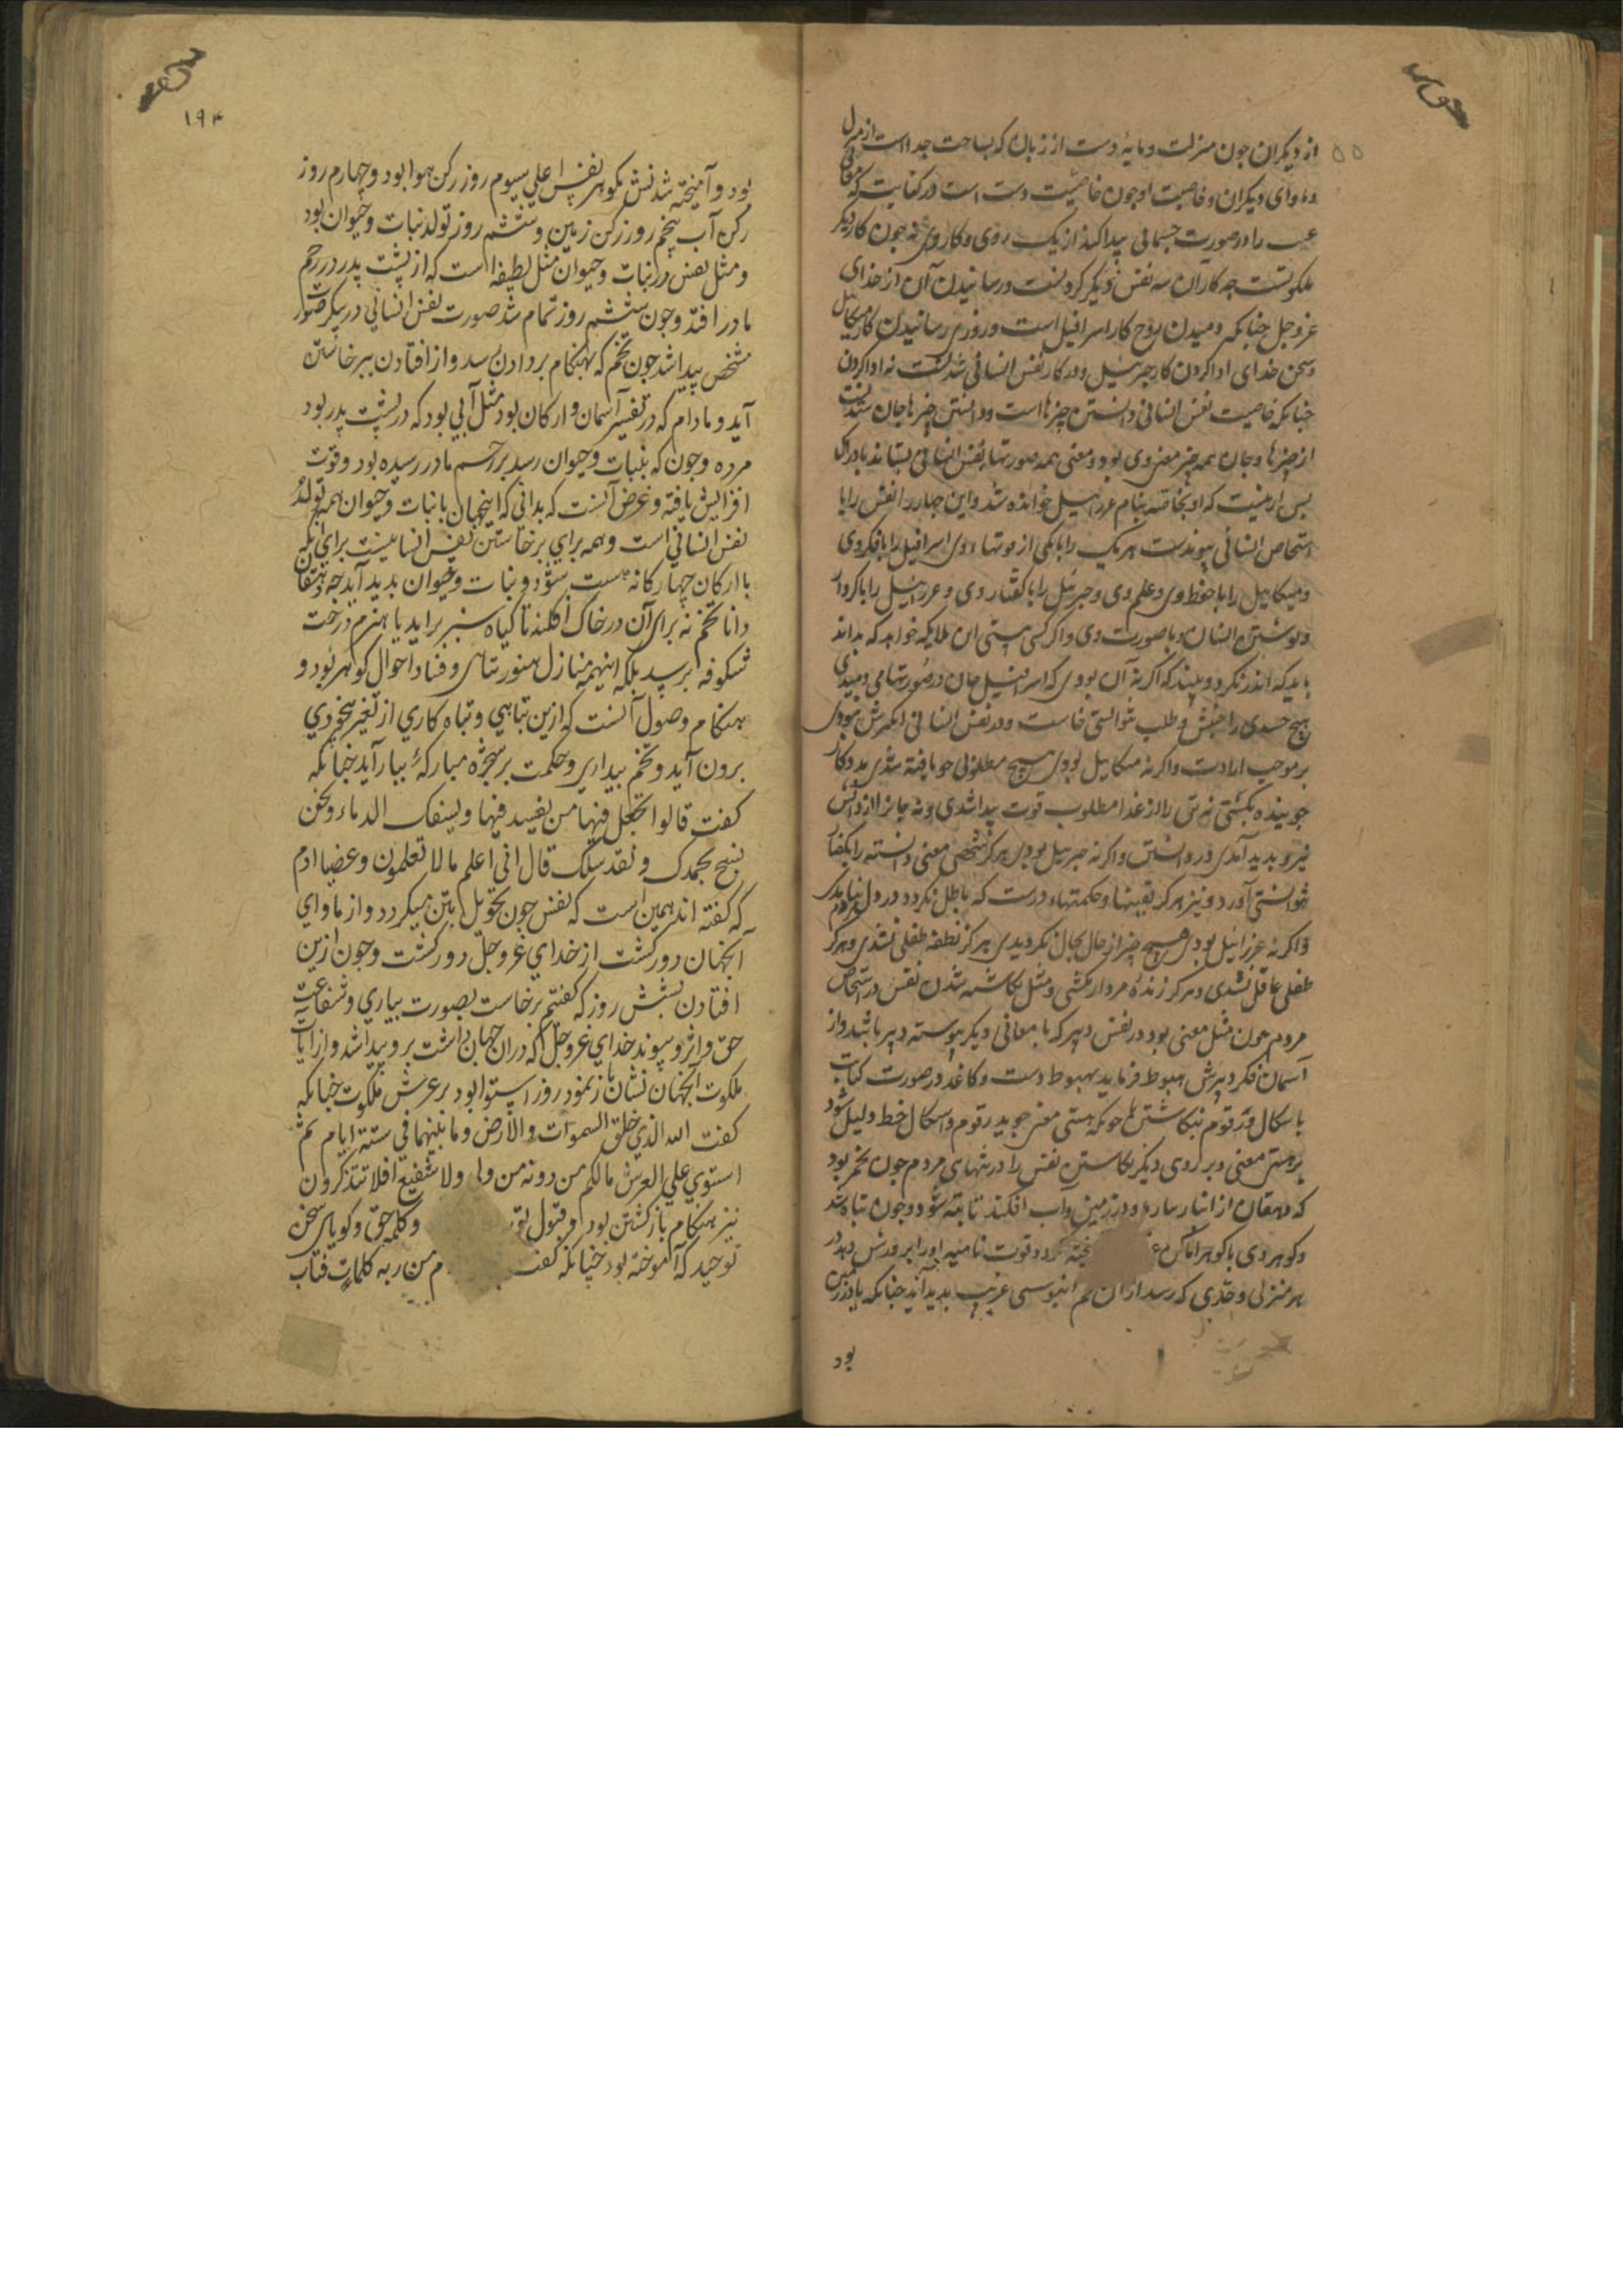 از دیکران جون منزلت و مایهٔ دست از زبان که بساحت جداست از منزل
و ماوای دیکران و خاصیت او جون خاصیت دست است در کفایت که
را در صورت جسمانی پیدا کند از یک روی و کار وی نه جون کار دیکر
جه کار آن سه نفس دیکر کردنست و رسانیدن آن از خدای
عز و جل جنانکه دمیدن روح کار اسرافیل است و روزی رسانیدن کار میکاییل
و سخن خدای ادا کردن کار جبرئیل و در کار نفس انسانی شدنست نه ادا کردن
جنانکه خاصیت نفس انسانی دانستن جیزهاست و دانستن جیزها جان ستدنست
از جیزها و جان همه جیز معنی وی بود و معنی همه صورتها نفس انسانی بستاند
پس ازینست که او بخاصه بنام عزرائیل خوانده شد و این جهار نفس را با
اشخاص انسانی پیوندست هر یک را با یکی از قوتها وی اسرافیل را با فکر وی
و میکاییل را با حفظ وی و علم وی و جبرئیل را با کفتار وی و عزرائیل را با کردار
و نوشتن انسان و با صورت وی و اکر کسی هستی این ملایکه خواهد که بداند
باید که اندر نکرد و ببیند که اکر نه آن بودی که اسرافیل جان در صورتها می دمیدی
هیج جسدی را جنبش و طلب نتوانستی خاست و در نفس انسانی نبودی
بر موجب ارادت و اکر نه میکاییل بودی هیج مطلوبی جو یافته نشدی
جوینده نکشتی نه تن را از غذا مطلوب قوت پیدا شدی و نه جانرا از دانش
نیرو پدید آمدی در دانستن و اکر نه جبرئیل بودی هرکز شخصی معنی دانسته را بکفتار
نتوانستی آورد و نیز هرکز یقینها و حکمتهاء درست که باطل نکردد در دل
و اکر نه عزرائیل بودی هیج جیز از حال بحال نکردیدی هرکز نطفه طفلی نشدی و هرکز
طفلی عاقل نشدی و هرکز زندهٔ مردار نکشتی و مثل نکاشته شدن نفس در اشخاص
مردم جون مثل معنی بود در نفس دبیر که با معانی دیکر پیوسته دبیر باشد و از
آسمان فکر دبیرش هبوط فرماید بهبوط دست و کاغذ در صورت کتابت
باشکال و رقوم نکاشتن جونکه هستی معنی جوید رقوم و اشکال خط دلیل شود
بر هستی معنی و بر روی دیکر نکاشتن نفس را در تنهای مردم جون تخم بود
که دهقان از انبار بیارد و در زمین و آب افکند تا بته شود و جون تباه شد
و کوهر وی با کوهر خاک و قوت نامیه او را پرورش دهد در
هر منزلی و حدی که رسد از آن تخم غریب پدید آید جنانکه
بود
۱۹۴
بود و آمیخته شدنش بکوهر نفس اعلی سیوم روز رکن هوا بود و جهارم روز
رکن آب پنجم روز رکن زمین و ششم روز تولد نبات و حیوان بود
و مثل نفس در نبات و حیوان مثل نطفه است که از پشت پدر در رحم
مادر افتد و جون ششم روز تمام شد صورت نفس انسانی در پیکر
مشخص پیدا شد جون تخم که بهنکام بر دادن رسد و از افتادن ببرخاستن
آید و مادام که در نفس آسمان و ارکان بود مثل آبی بود که در پشت پدر بود
مرده و جون که بنبات و حیوان رسد برحم مادر رسیده بود و قوت
افزایش یافته و غرض آنست که بدانی که اینجهان با نبات و حیوان همه تولد
نفس انسانی است و همه برای برخاستن نفس انسانیست برای آنکه
با ارکان جهارکانه هست شود و نبات و حیوان پدید آید جه دهقان
دانا تخم نه برای آن در خاک افکند تا کیاه سبز براید یا هیزم درخت
شکوفه برسد بلکه اینهمه منازل هنوز تباهی و فساد احوال کوهر بود و
هنکام وصول آنست که ازین تباهی و تباه کاری از تغیر بیخودی
برون آید و تخم بیداری و حکمت بر شجرهٔ مبارکهٔ ببار آید جنانکه
کفت قالوا اتجعل فیها من یفسد فیها و یسفک الدماء و نحن
نسبح بحمدک و نقدس لک قال انی اعلم ما لا تعلمون و عصیا ادم
که کفته اند همین است که نفس جون تحویل بتن میکردد و از ماوای
آنجهان دور کشت از خدای عز و جل دور کشت و جون ازین
افتادن بشش روز که کفتیم برخاست بصورت بیاری و شفاعت
حق و اثر و پیوند خدای عز و جل که دران جهان داشت برو پیدا شد و از آیات
ملکوت آنجهان نشان باز نمود روز استوا بود بر عرش ملکوت جنانکه
کفت الله الذی خلق السموات و الارض و ما بینهما فی ستة ایام ثم
استوی علی العرش مالکم من دونه من ولی و لا شفیع افلا تتذکرون
نیز هنکام باز کشتن بود و قبول و کلمه حق و کویای سخن
توحید که آموخته بود جنانکه کفت من ربه کلمات فتاب